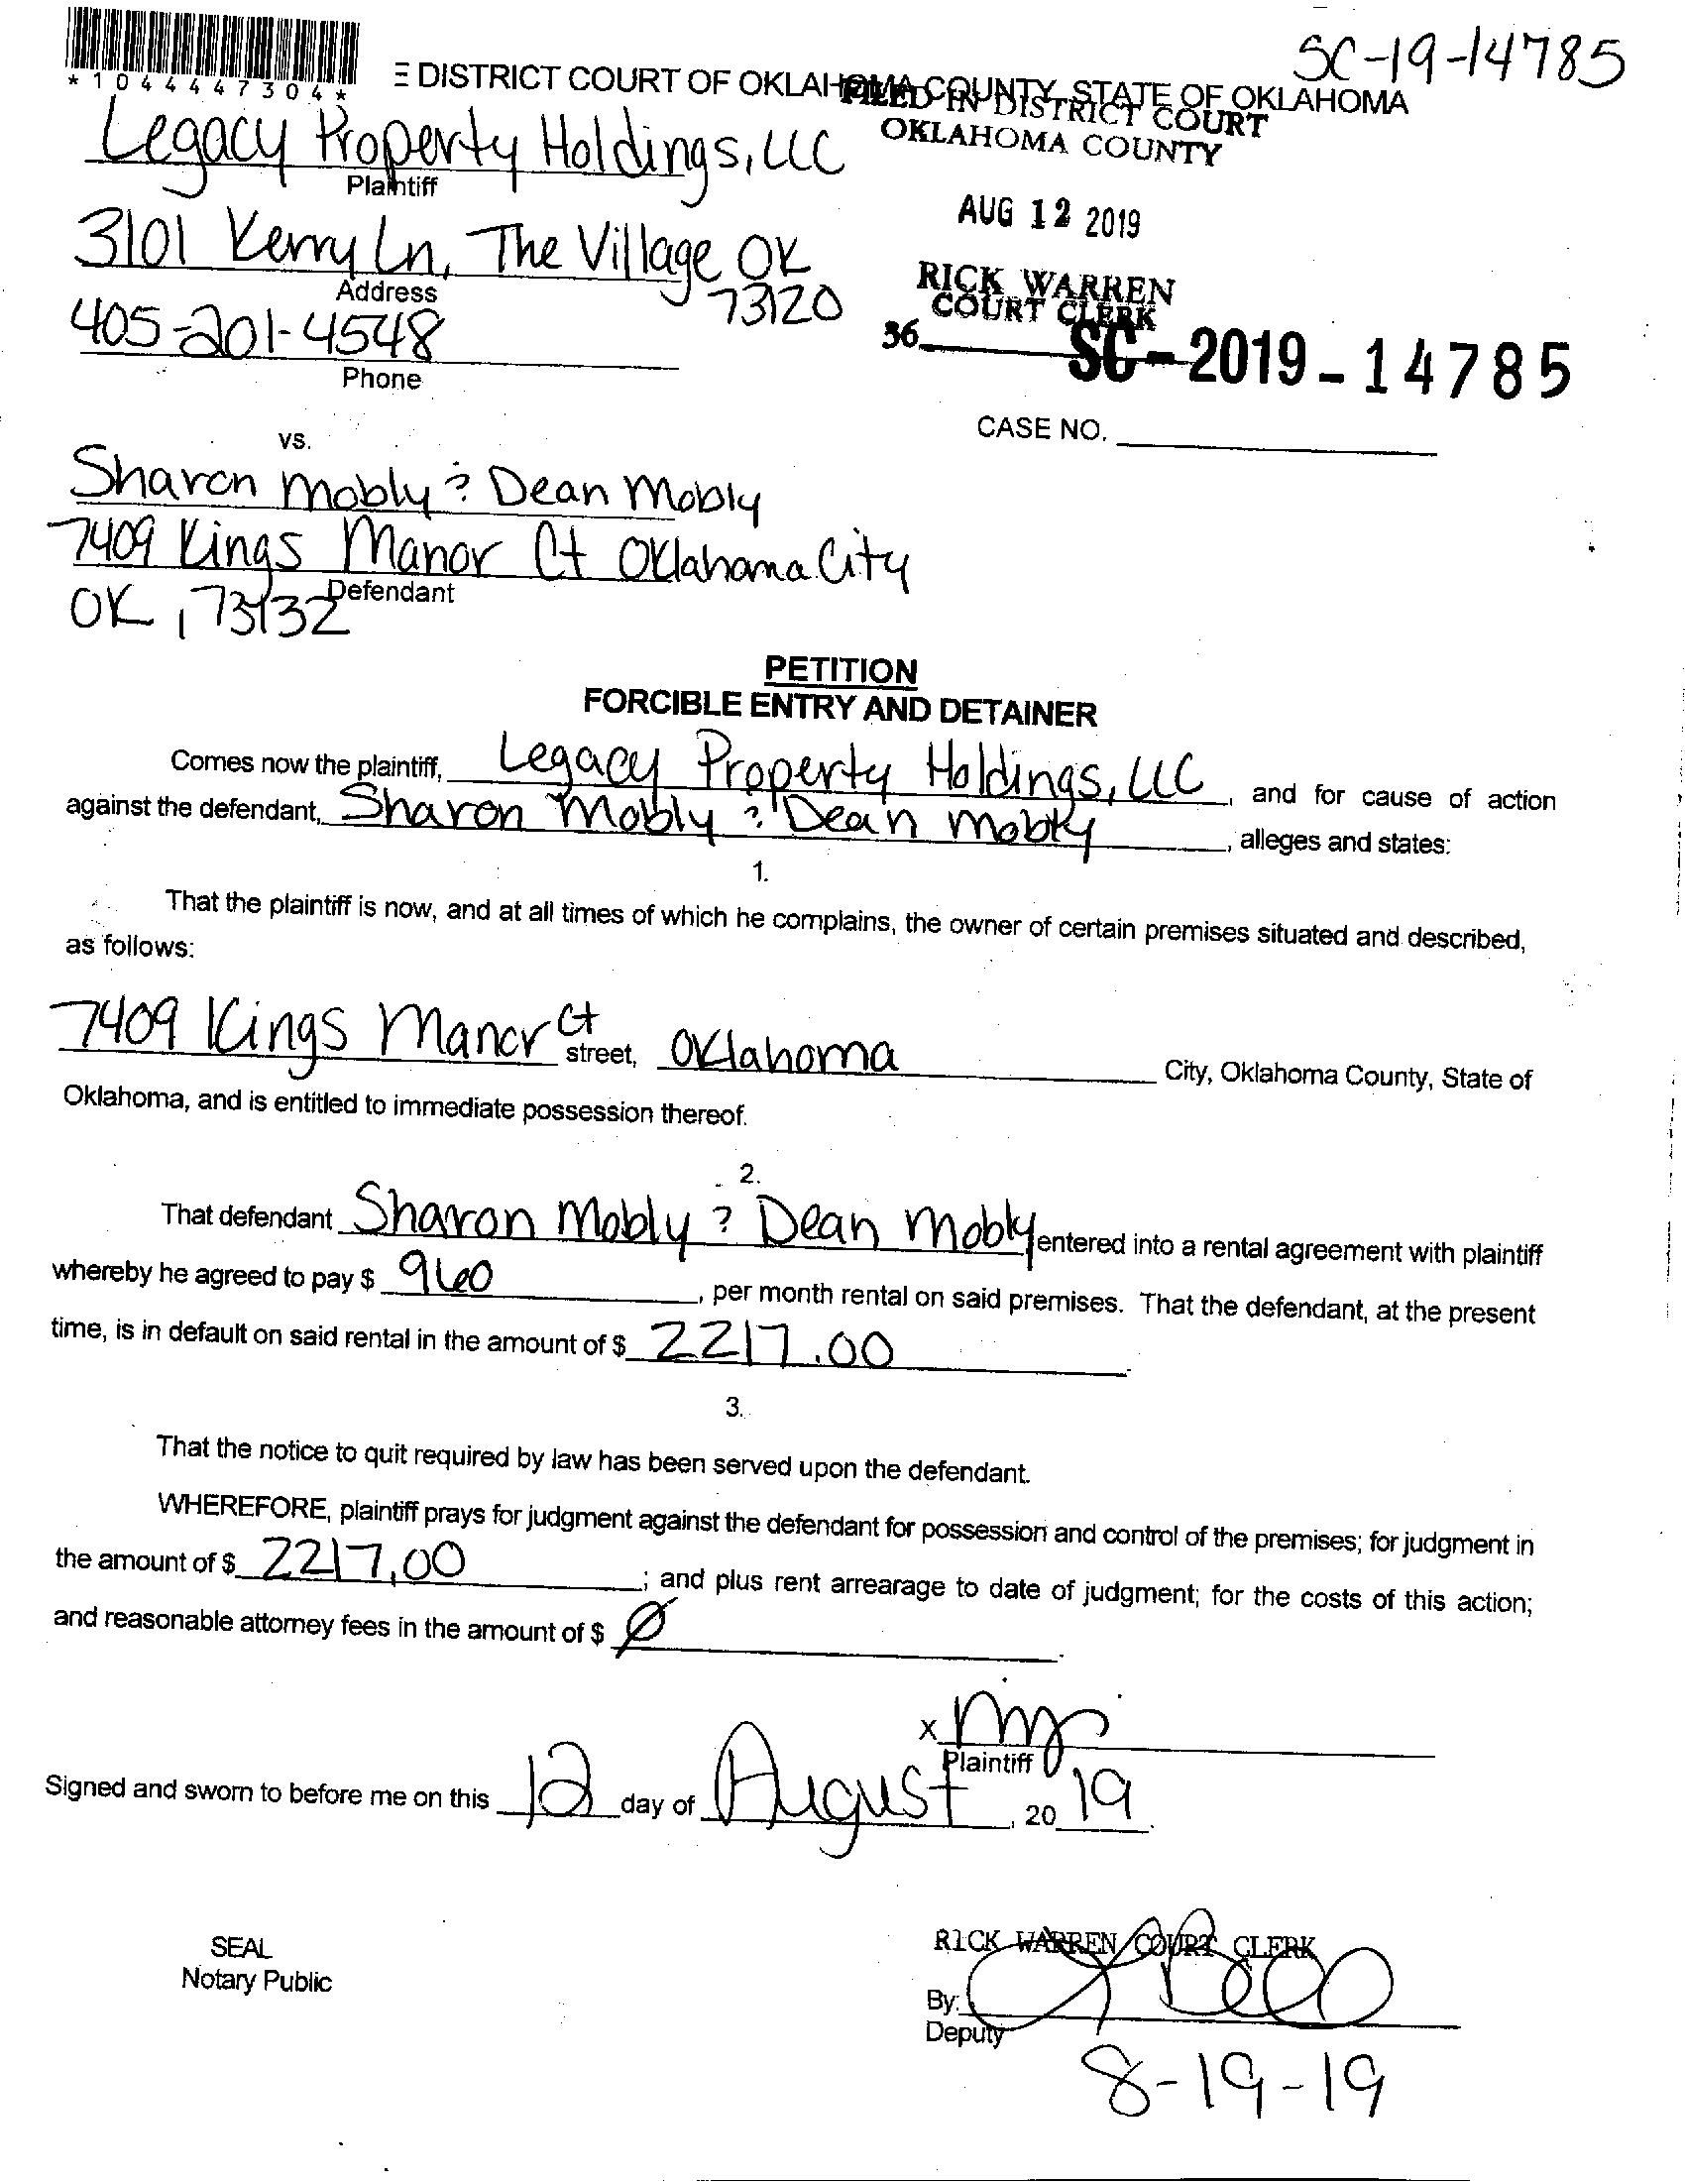 SC-19-14785
*1044447304*
E DISTRICT COURT OF OKLAHOMA COUNTY, STATE OF OKLAHOMA
FILED IN DISTRICT COURT
OKLAHOMA COUNTY
Legacy Property Holdings, LLC
Plaintiff
AUG 12 2019
3101 Kerry Ln, The Village OK
73120
Address
RICK WARREN
COURT CLERK
405-201-4548
36
SC-2019-14785
Phone
CASE NO.
vs.
Sharon Mobly & Dean Mobly
7409 Kings Manor Ct Oklahoma City
OK, 73132
Defendant
PETITION
FORCIBLE ENTRY AND DETAINER
Comes now the plaintiff, Legacy Property Holdings, LLC, and for cause of action
against the defendant, Sharon Mobly & Dean Mobly, alleges and states:
1.
That the plaintiff is now, and at all times of which he complains, the owner of certain premises situated and described,
as follows:
7409 Kings Manor Ct street, Oklahoma City, Oklahoma County, State of
Oklahoma, and is entitled to immediate possession thereof.
2.
That defendant Sharon Mobly & Dean Mobly entered into a rental agreement with plaintiff
whereby he agreed to pay $ 960, per month rental on said premises. That the defendant, at the present
time, is in default on said rental in the amount of $ 2217.00.
3.
That the notice to quit required by law has been served upon the defendant.
WHEREFORE, plaintiff prays for judgment against the defendant for possession and control of the premises; for judgment in
the amount of $ 2217.00; and plus rent arrearage to date of judgment; for the costs of this action;
and reasonable attorney fees in the amount of $ Ø.
X
Plaintiff
Signed and sworn to before me on this 12 day of August, 2019.
SEAL
Notary Public
RICK WARREN COURT CLERK
By:
Deputy
8-19-19